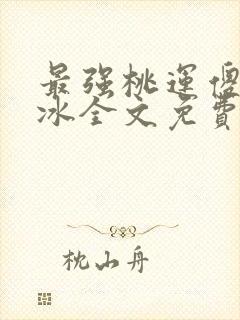 最强桃运傻
冰全文免費
枕山舟